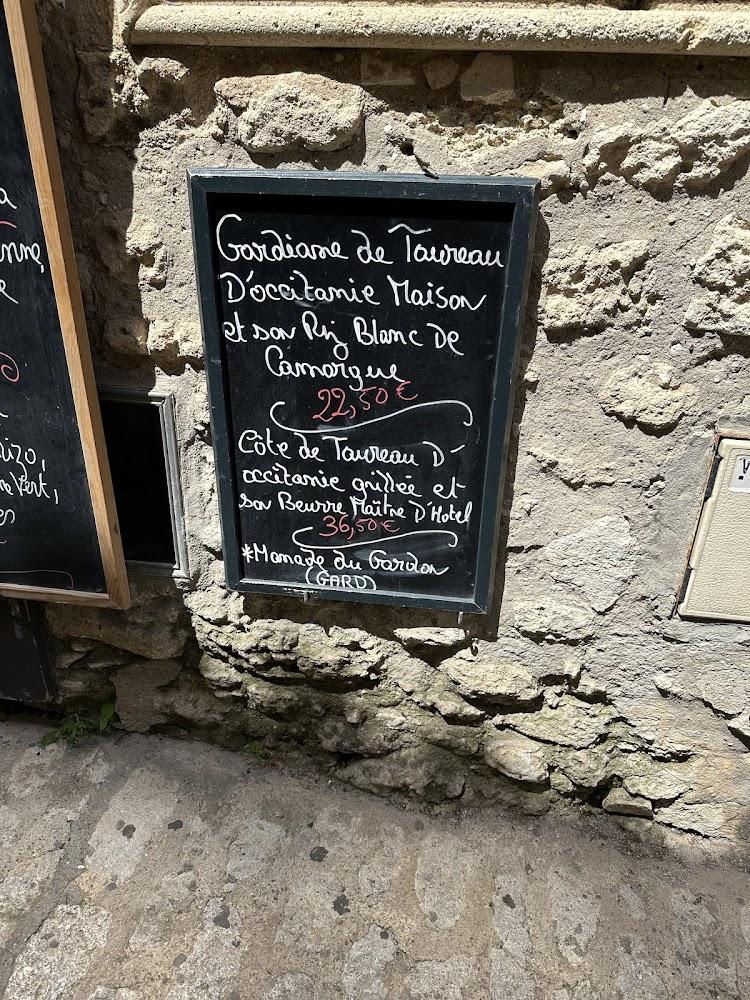 Gardiane de Taureau
D'occitanie Maison
et son Riz Blanc De
Camargue
22,50 €
Côte de Taureau D'
occitanie grillée et
son Beurre Maître D'Hotel
36,50 €
*Manade du Gardon
(GARD)